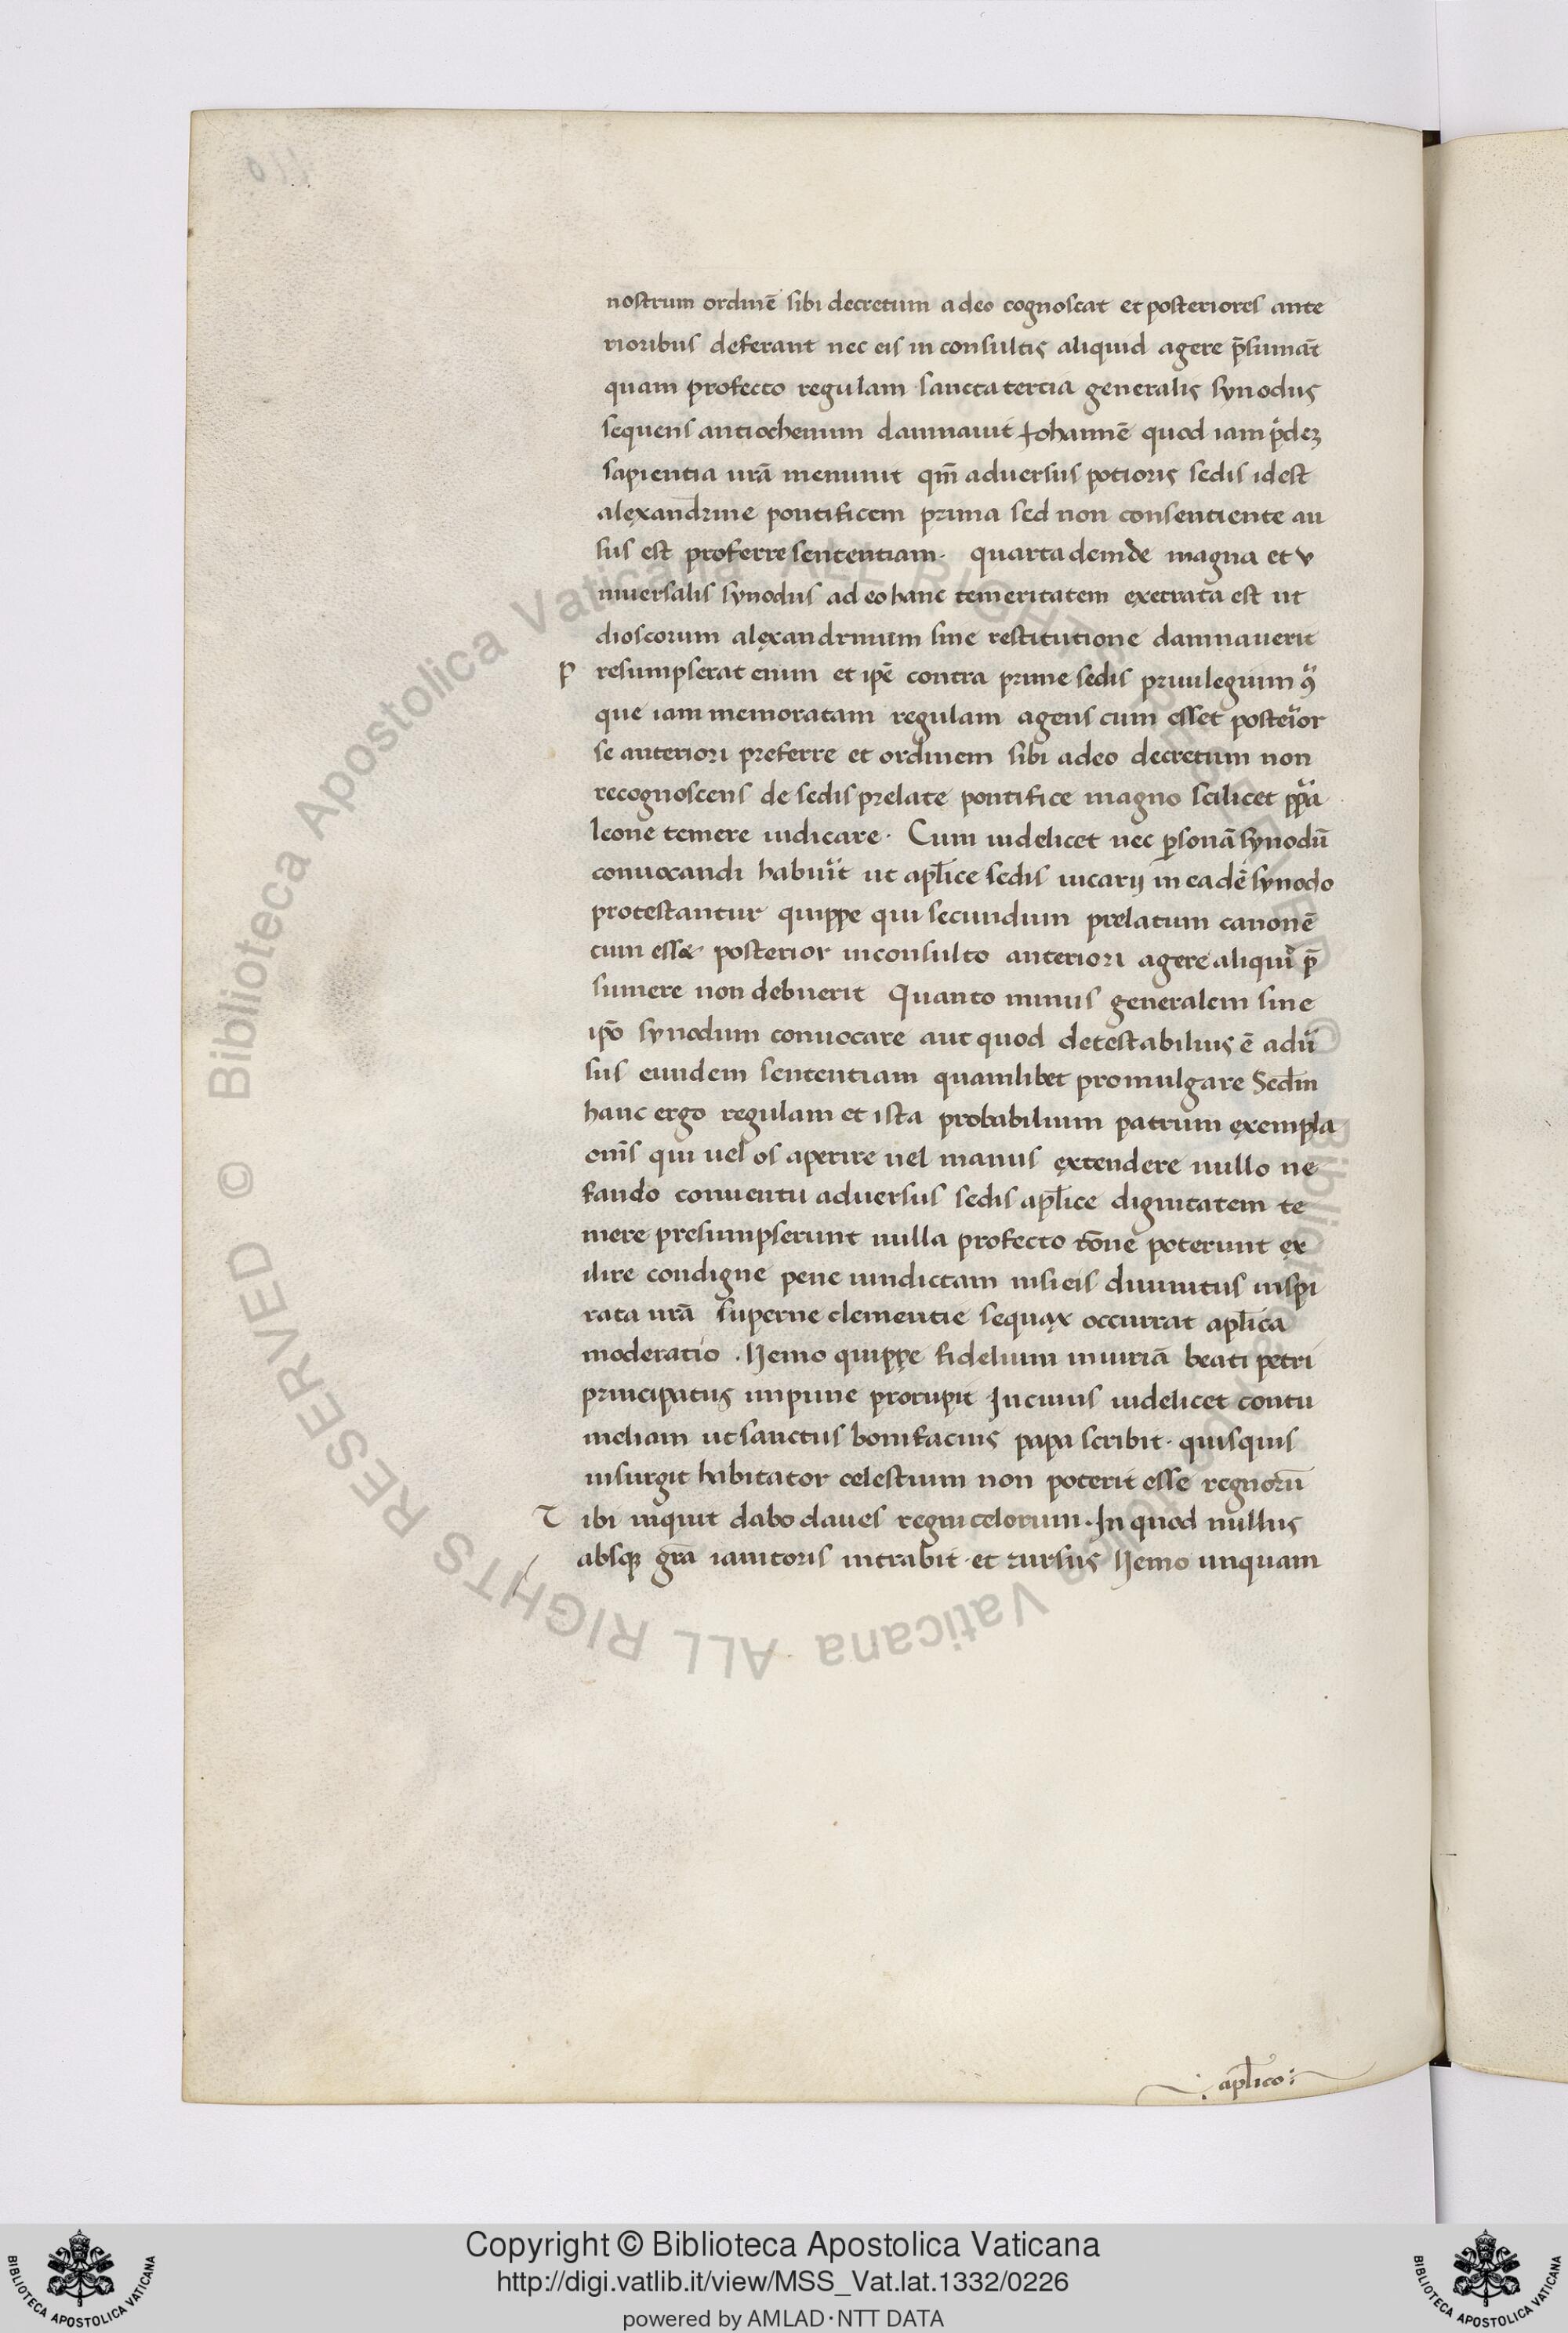 nostrum ordinē sibi decretum adeo cognoscat et posteriores ante
rioribus deferant nec eis in consultis aliquid agere p̄sumāt
quam profecto regulam sancta tertia generalis synodus
sequens antiochenum damnavit Iohannē quod iam
sapientia urā meminit qm̄ adversus potioris sedis idest
alexandrine pontificem prima sed non consentiente au
sus est proferre sententiam. quarta deinde magna et v
niversalis synodus adeo hanc temeritatem execrata est ut
dioscorum alexandrinum sine restitutione damnaverit
P resumpserat enim et ip̄e contra prime sedis privilegium
que iam memoratam regulam agens cum esset posterior
se anteriori preferre et ordinem sibi adeo decretum non
recognoscens de sedis prelate pontifice magno scilicet
leone temere iudicare. Cum uidelicet nec ꝑsonā synodū
convocandi habuit ut apl̄ice sedis uicarij in eadē synodo
protestantur quippe qui secundum prelatum canonē
cum esset posterior inconsulto anteriori agere aliquid p̄
sumere non debuerit Quanto minus generalem sine
ip̄o synodum convocare aut quod detestabilius ē adu
sus eiusdem sententiam quamlibet promulgare Secdm
hanc ergo regulam et ista probabilium patrum exempla
om̄s qui uel os aperire uel manus extendere nullo ne
fando conventu adversus sedis apl̄ice dignitatem te
mere presumpserunt nulla profecto rōne poterunt ex
ilire condigne pene uindictam nisi eis divinitus inspi
rata urā superne clementie sequax occurrat apl̄ica
moderatio . Nemo quippe fidelium iniuriā beati petri
principatus impune prorupit In cuius uidelicet contu
meliam ut sanctus bonifacius papa scribit. quisquis
insurgit habitator celestium non poterit esse regnorū
T ibi inquit dabo claues regni celorum. In quod nullus
absqꝫ gr̄a ianitoris intrabit. et rursus Nemo unquam
apl̄ico:
Copyright © Biblioteca Apostolica Vaticana
http://digi.vatlib.it/view/MSS_Vat.lat.1332/0226
powered by AMLAD·NTT DATA
BIBLIOTECA APOSTOLICA VATICANA
BIBLIOTECA APOSTOLICA VATICANA
© Biblioteca Apostolica Vaticana ALL RIGHTS RESERVED © Biblioteca Apostolica Vaticana ALL RIGHTS RESERVED